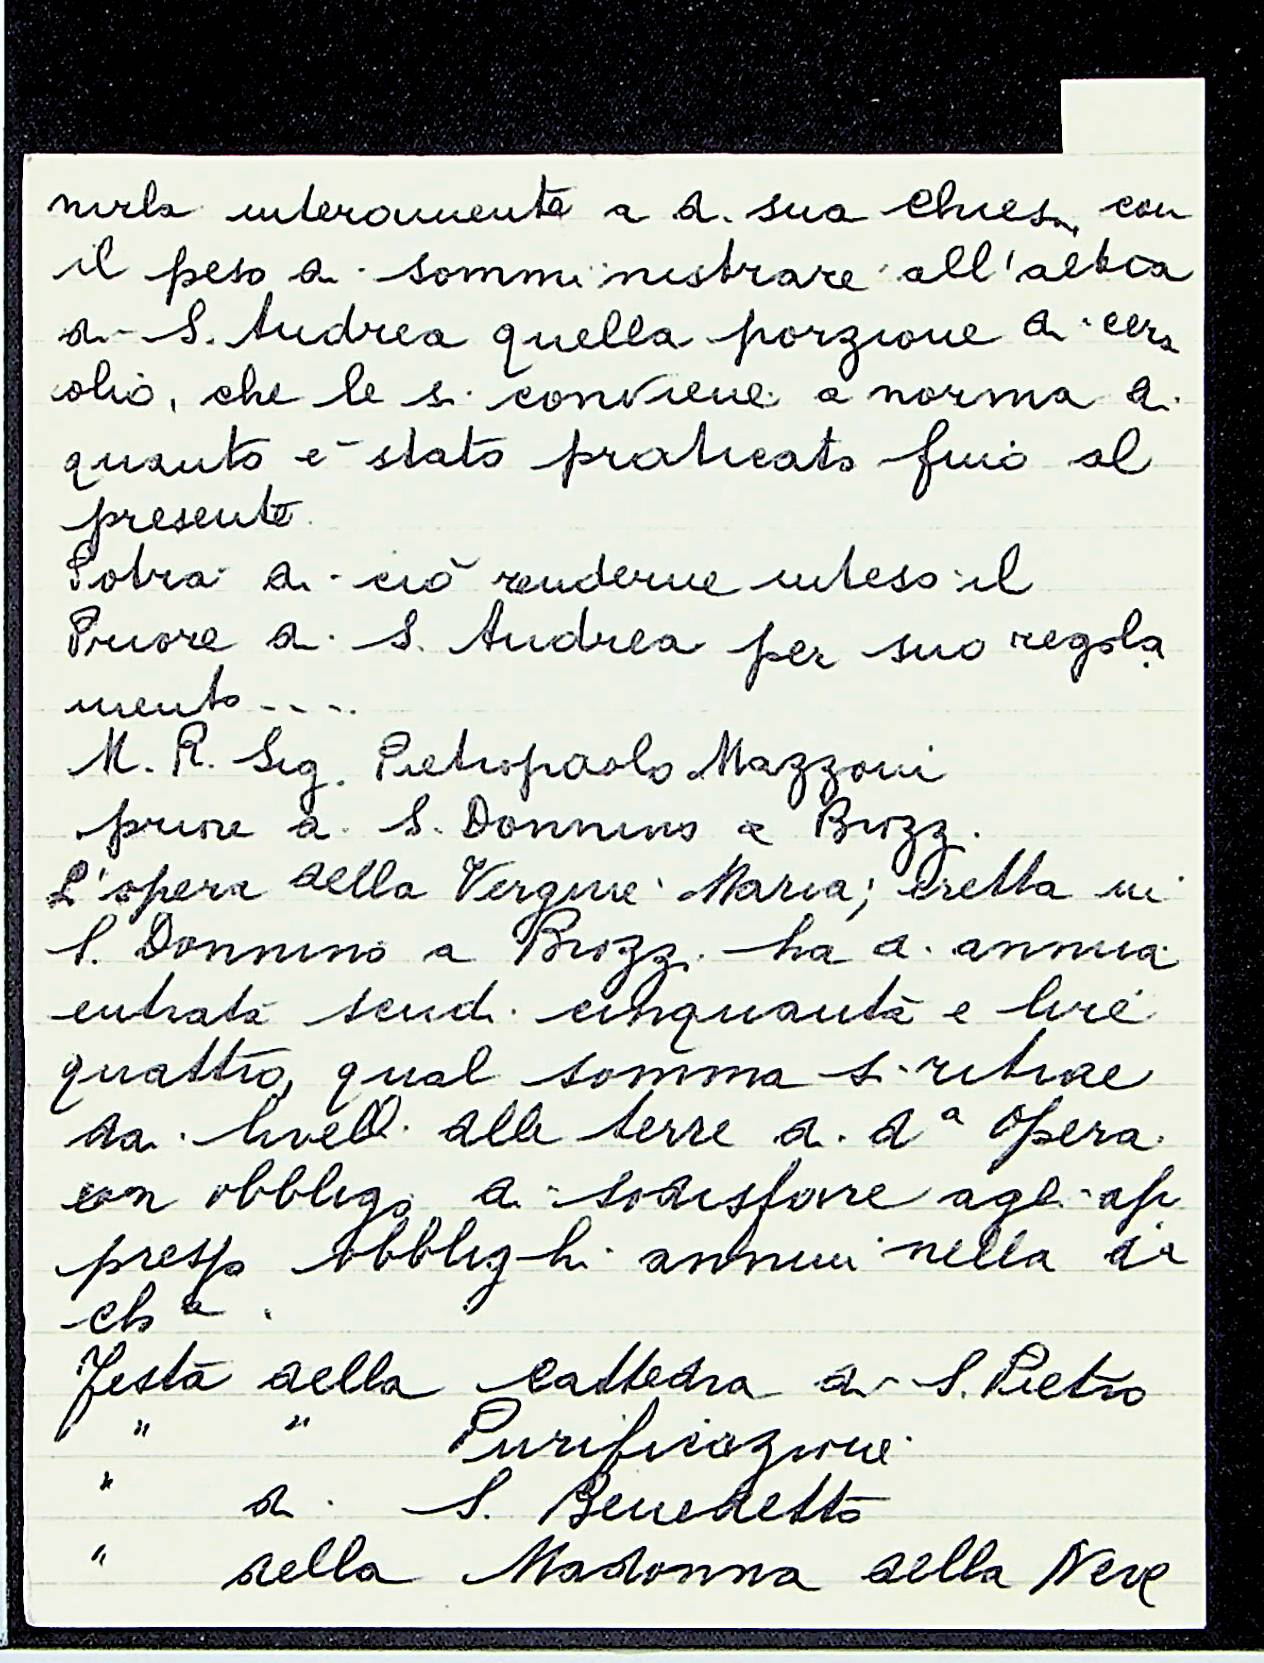 nirla interamente a d. sua Chiesa, con
il peso di somministrare all'altra
di S. Andrea quella porzione di cera
olio, che le si conviene a norma di
quanto è stato praticato fino al
presente.
Potrà di ciò renderne inteso il
Priore di S. Andrea per suo regola
mento....
M. R. Sig. Pietropaolo Mazzoni
priore di S. Donnino a Brozzi.
L'opera della Vergine Maria, eretta in
S. Donnino a Brozzi ha di annua
entrata scudi cinquanta e lire
quattro, qual somma si ritrae
da livelli delle terre di d.ª Opera
con obbligo di sodisfare agli ap
presso obblighi annui nella di
chª.
Festa della Cattedra di S. Pietro
" " Purificazione
" di S. Benedetto
" della Madonna della Neve